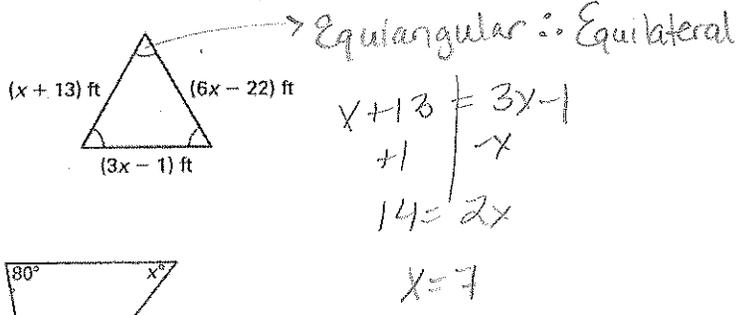 Equiangular ∴ Equilateral
(x + 13) ft (6x − 22) ft
(3x − 1) ft
x+13 = 3x-1
+1 -x
14 = 2x
x=7
80° x°